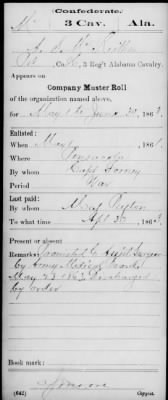 Confederate.
3 Cav. Ala.
3 Reg't Alabama Cavalry.
Appears on
Company Muster Roll
of the organization named above,
for May 1 to June 30, 1863.
Enlisted:
When May, 1861.
Where Pensacola
By whom Capt Forney
Period War
Last paid:
By whom Maj Peyton
To what time Apl 30, 1863.
Present or absent
Remarks: Promoted to Asst Surgeon
by Army Medical Board
May 1863, Discharged
by order
Book mark:
(642) Copyist.